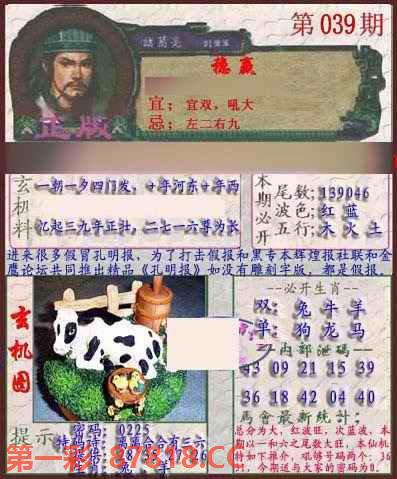 第039期
諸葛亮
穩贏
宜；宜双，吼大
忌；左二右九
正版
玄机料
一朝一夕四门发，十年河东十年西
忆起三九平正壮，二七一六尊为长
本期必开
尾数;139046
波色;红 蓝
五行;木 火 土
进来很多假冒孔明报，为了打击假报和黑专本辉煌报社联和金
鹰论坛共同推出精品《孔明报》如没有雕刻字版，都是假报。
玄机图
必开生肖
双: 兔 牛 羊
单: 狗 龙 马
内部泄码
43 09 21 15 39
36 18 42 04 20
馬會最新統計:
总分为大，红波旺，次蓝波，本
期以一和六之尾数大旺，本仙机
特如下推介，吼够号码两个：36
31，今期道与大家的密码为0.
提示
密码: 0225
第一彩:87818.CC